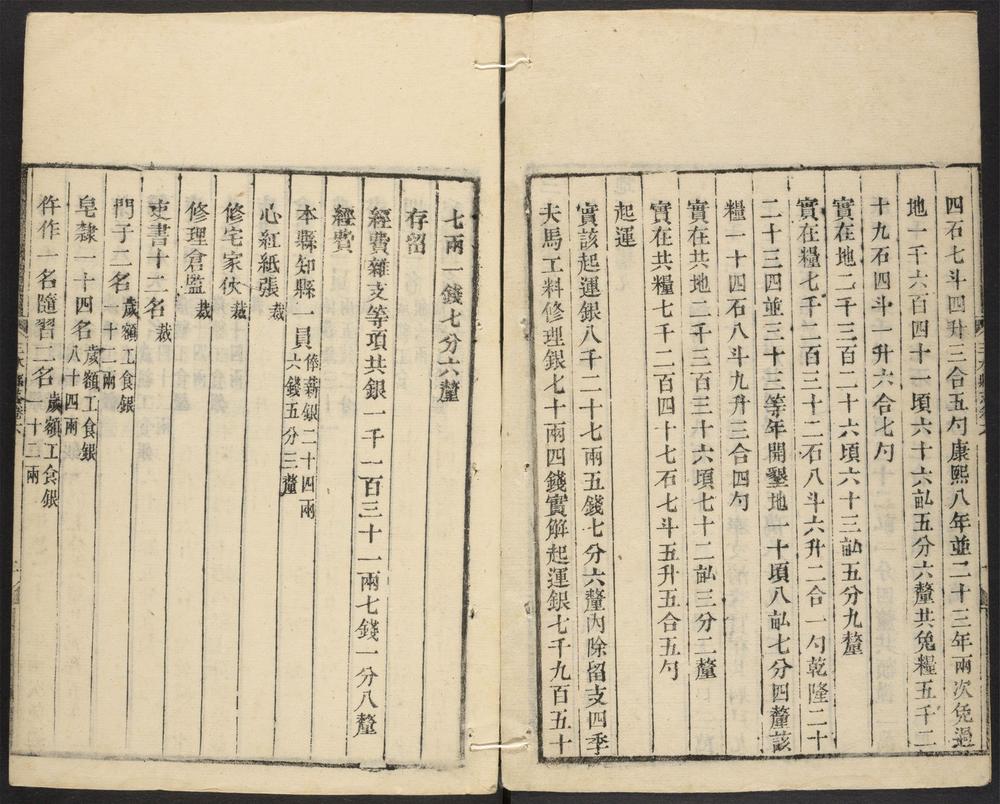 四石七斗四升三合五勺康熙八年並二十三年兩次免過
地一千六百四十頃六十六畆五分六釐共免糧五千二
十九石四斗一升六合七勺
實在地二千三百二十六頃六十三畆五分九釐
實在糧七千二百三十二石八斗六升二合一勺乾隆二十
二十三四並三十三等年開墾地一十頃八畆七分四釐該
糧一十四石八斗九升三合四勺
實在共地二千三百三十六頃七十二畆三分二釐
實在共糧七千二百四十七石七斗五升五合五勺
起運
實該起運銀八千二十七兩五錢七分六釐內除留支四季
夫馬工料修理銀七十兩四錢實解起運銀七千九百五十
七兩一錢七分六釐
存留
經費雜支等項共銀一千一百三十一兩七錢一分八釐
經費
本縣知縣一員俸薪銀二十四兩
六錢五分三釐
心紅紙張裁
修宅家伙裁
修理倉監裁
吏書十二名裁
門子二名歲額工食銀
一十二兩
皂隸一十四名歲額工食銀
八十四兩
仵作一名隨習二名歲額工食銀
十二兩